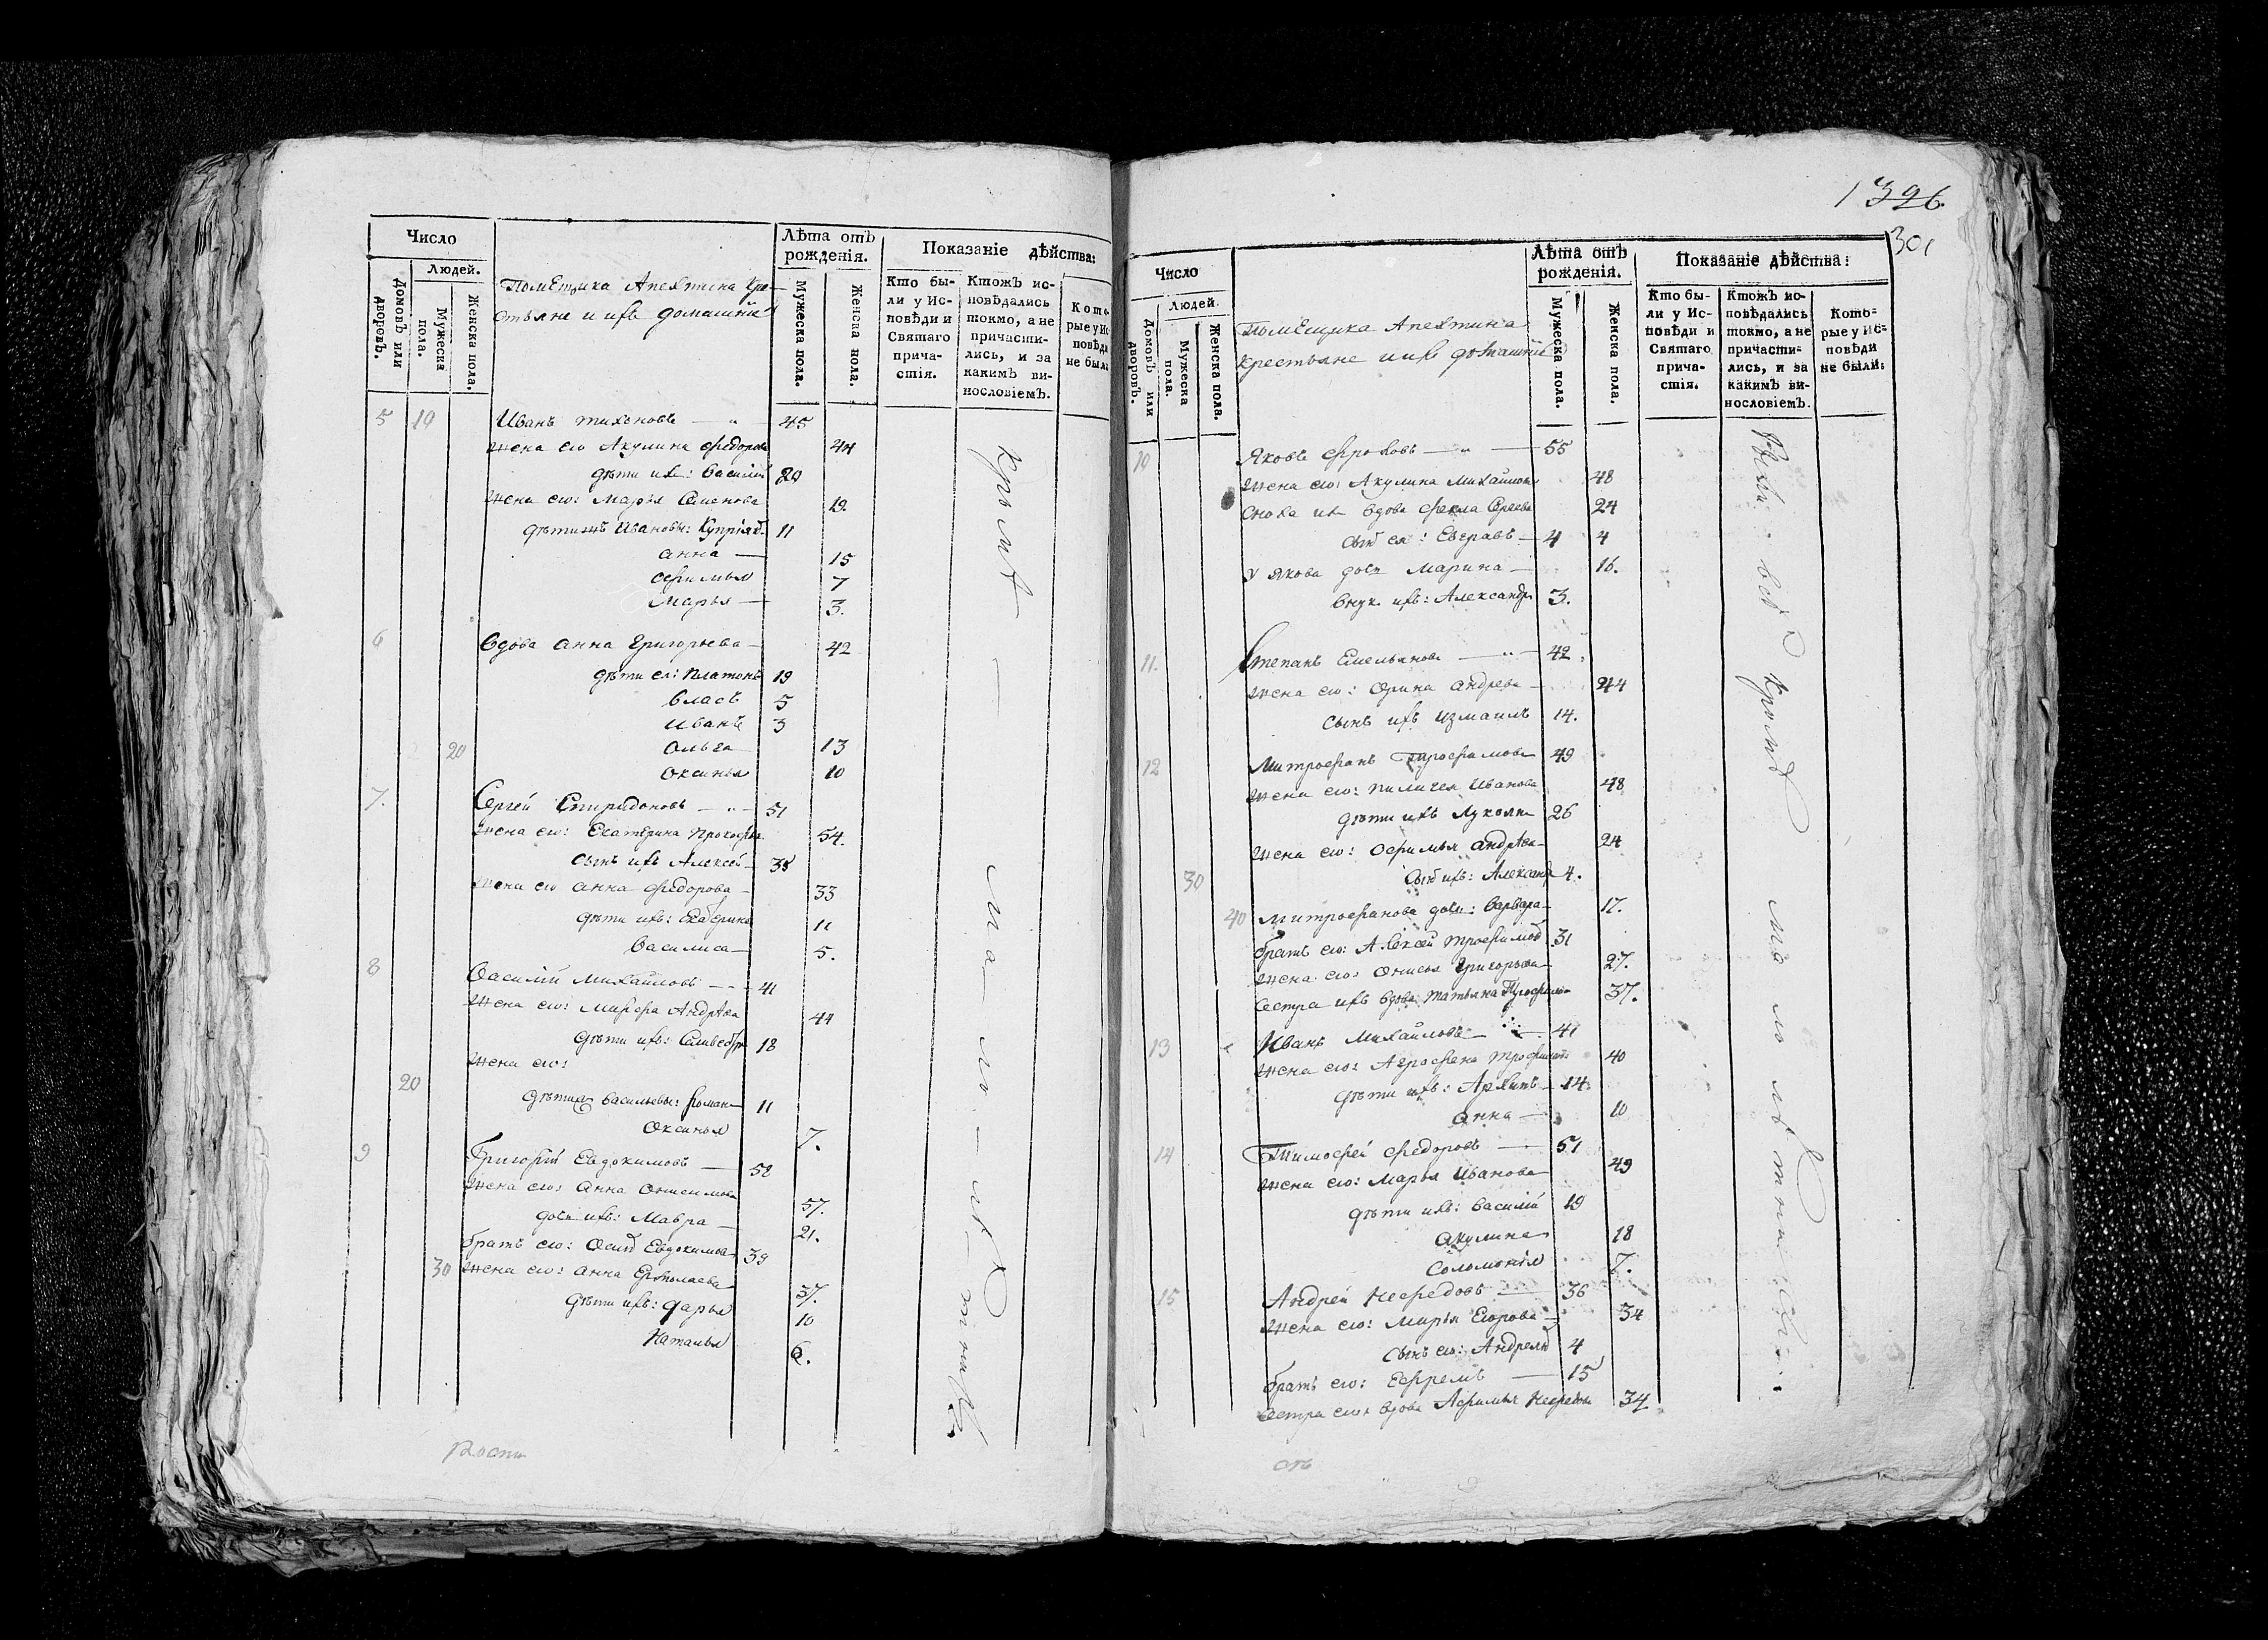 Число
Людей.
Домовъ или дворовъ.
Мужеска пола.
Женска пола.
Помещика Апехтина кре-
стьяне и ихъ домашніе
Лѣта отъ рожденія.
Мужеска пола.
Женска пола.
Показаніе дѣйства:
Кто бы-
ли у Ис-
повѣди и
Святаго
прича-
стія.
Ктожъ ис-
повѣдались
токмо, а не
причасти-
лись, и за
какимъ ви-
нословіемъ.
Кото-
рые у Ис-
повѣди
не были
5 10 Иванъ Тихоновъ — 45
жена его Акулина Федорова 44
дѣти ихъ: Василій 20
жена его: Марья Семенова 19.
дѣтижъ Ивановы: 11
Анна — 15
Офимья 7
Марья — 3.
6 Вдова Анна Григорьева — 42
дѣти ея: Платонъ 19
Власъ 5
Иванъ 3
20 Ольга 13
Оксинья 10
7. Сергей Спиридоновъ — 51
жена его: Екатерина 54.
сынъ ихъ Алексей — 35
жена его Анна Федорова — 33
дѣти ихъ: Екатерина 11
Василиса — 5.
8 Василій Михайловъ — 41
жена его: Андрѣва 44
дѣти ихъ: 18
жена его:
20 Васильевы: Роман — 11
Оксинья 7.
9 Григорій Евдокимовъ — 58
жена его: Анна Онисимова 57.
дочь ихъ: Мавра — 21.
братъ его: Осипъ Евдокимовъ 39
30 жена его: Анна Ермолаева 37.
дѣти ихъ: Дарья 10
Наталья 6.
кромѣ — мало — лѣтныхъ
1326
301
Число
Людей.
Домовъ или дворовъ.
Мужеска пола.
Женска пола.
Помещика Апехтина
крестьяне и ихъ домашніе
Лѣта отъ рожденія.
Мужеска пола.
Женска пола.
Показаніе дѣйства:
Кто бы-
ли у Ис-
повѣди и
Святаго
прича-
стія.
Ктожъ ис-
повѣдались
токмо, а не
причасти-
лись, и за
какимъ ви-
нословіемъ.
Кото-
рые у Ис-
повѣди
не были:
10 Яковъ Фроловъ — 55
жена его: Акулина Михайлова 48
сноха ихъ вдова Фекла 24
сынъ ея: Евграфъ — 4 4
у Якова дочь Марина — 16.
внук ихъ: Александр 3.
11. Степанъ Емельяновъ — 42
жена его: Орина Андрева — 44
сынъ ихъ Измаилъ 14.
12 Митрофанъ Трофимовъ 49
жена его: Пилигея Иванова 48
дѣти ихъ Лукоян 26
жена его: Офимья Андрѣва — 24
30 сынъ ихъ: Александ 4.
40 Митрофанова дочь: Варвара — 17.
братъ его: Алексей Трофимовъ 31
жена его: Онисья Григорьева — 27.
Сестра ихъ вдова Татьяна 37.
13 Иванъ Михайловъ — 41
жена его: Аграфена 40
дѣти ихъ: Архипъ — 14
Анна — 10
14 Тимофей Федоровъ — 51
жена его: Марья Иванова 49
дѣти ихъ: Василій 19
Акулина 18
Соломонія 7.
15 Андрей Нефедовъ — 36
жена его: Марья Егорова — 34
сынъ его: 4
братъ его: Ефремъ — 15
Сестра его: вдова Афимья 34
всѣ кромѣ малолѣтныхъ